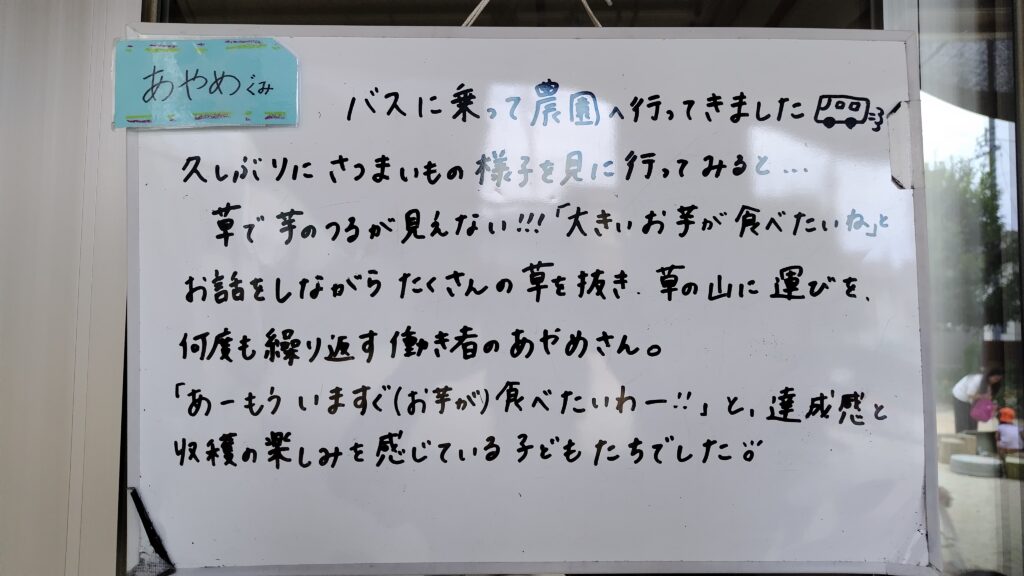 あやめぐみ
バスに乗って農園へ行ってきました
久しぶりにさつまいもの様子を見に行ってみると...
草で芋のつるが見えない!!!「大きいお芋が食べたいね」と
お話をしながらたくさんの草を抜き、草の山に運びを、
何度も繰り返す働き者のあやめさん。
「あーもういますぐ(お芋が)食べたいわー!!」と、達成感と
収穫の楽しみを感じている子どもたちでした